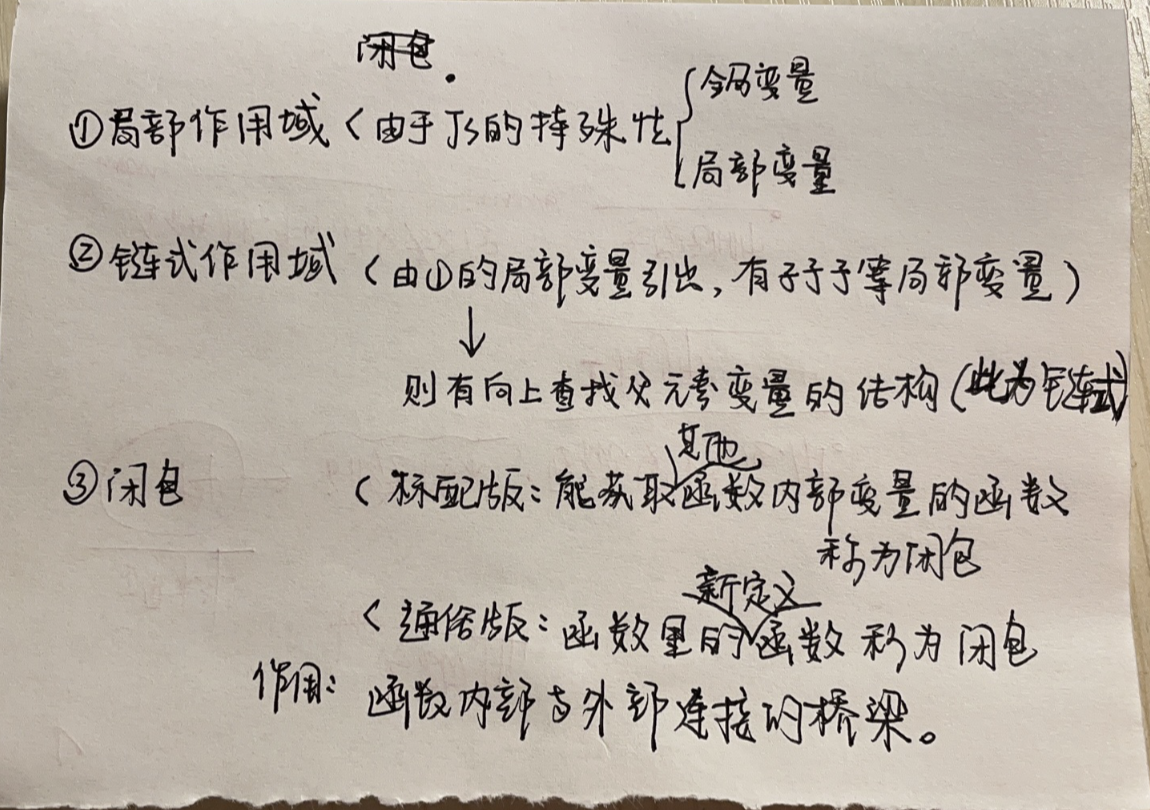 闭包.
①局部作用域〈由于JS的特殊性{全局变量
局部变量
②链式作用域(由①的局部变量引出,有子子子等局部变量)
↓
则有向上查找父元素变量的结构(此为链式)
③闭包〈标配版:能获取其他函数内部变量的函数
称为闭包
〈通俗版:函数里的新定义函数称为闭包
作用:函数内部与外部连接的桥梁。